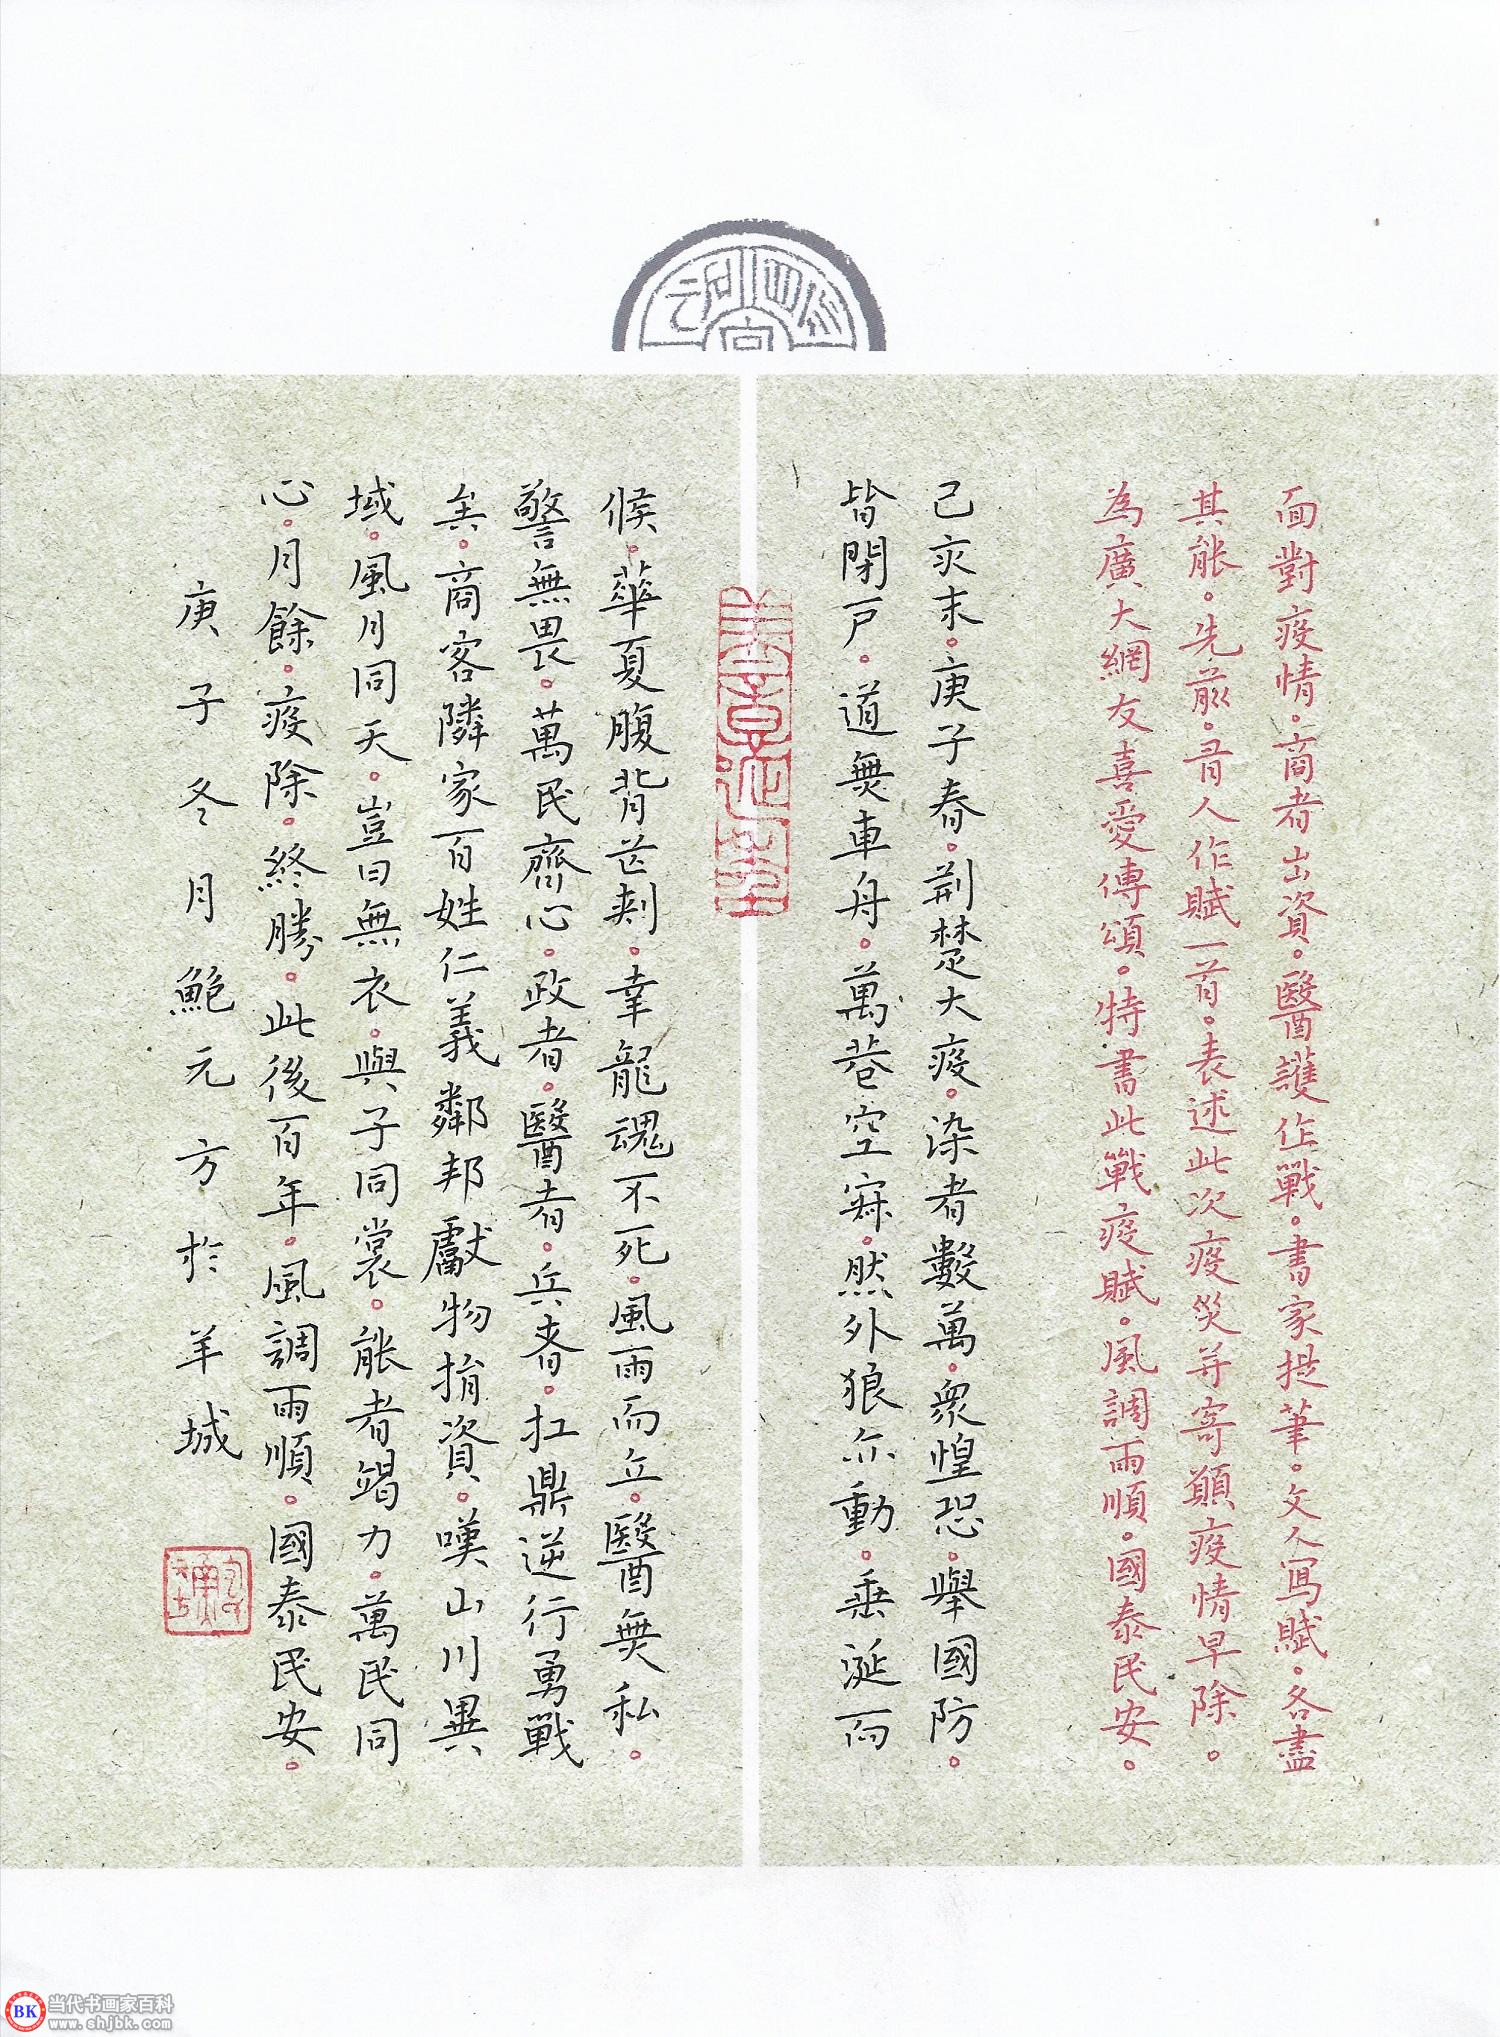 面對疫情。商者出資。醫護作戰。書家提筆。文人寫賦。各盡
其能。先前。有人作賦一首。表述此次疫災并寄願疫情早除。
為廣大網友喜愛傳頌。特書此戰疫賦。風調雨順。國泰民安。
己亥末。庚子春。荊楚大疫。染者數萬。衆惶恐。舉國防。
皆閉戶。道無車舟。萬巷空寂。然外狼亦動。垂涎而
候。華夏腹背芒刺。幸龍魂不死。風雨而立。醫無私。
警無畏。萬民齊心。政者。醫者。兵者。扛鼎逆行勇戰
矣。商客隣家百姓仁義鄰邦獻物捐資。嘆山川異
域。風月同天。豈曰無衣。與子同裳。能者竭力。萬民同
心。月餘。疫除。終勝。此後百年。風調雨順。國泰民安。
庚子冬月鮑元方於羊城
BK 当代书画家百科
www.shjbk.com